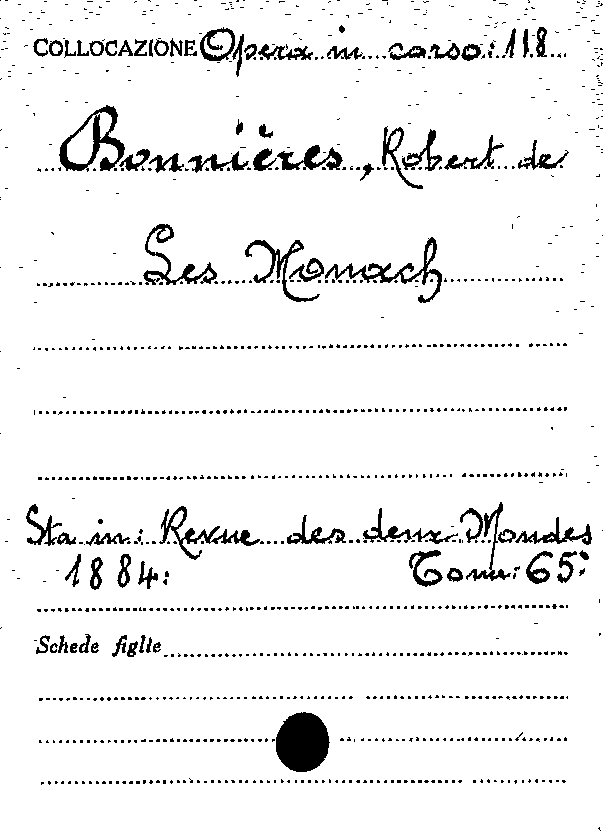 COLLOCAZIONE Opera in corso: 118
Bonnières, Robert de
Les Monach
Sta in: Revue des deux Mondes
1884: Tome: 65:
Schede figlie